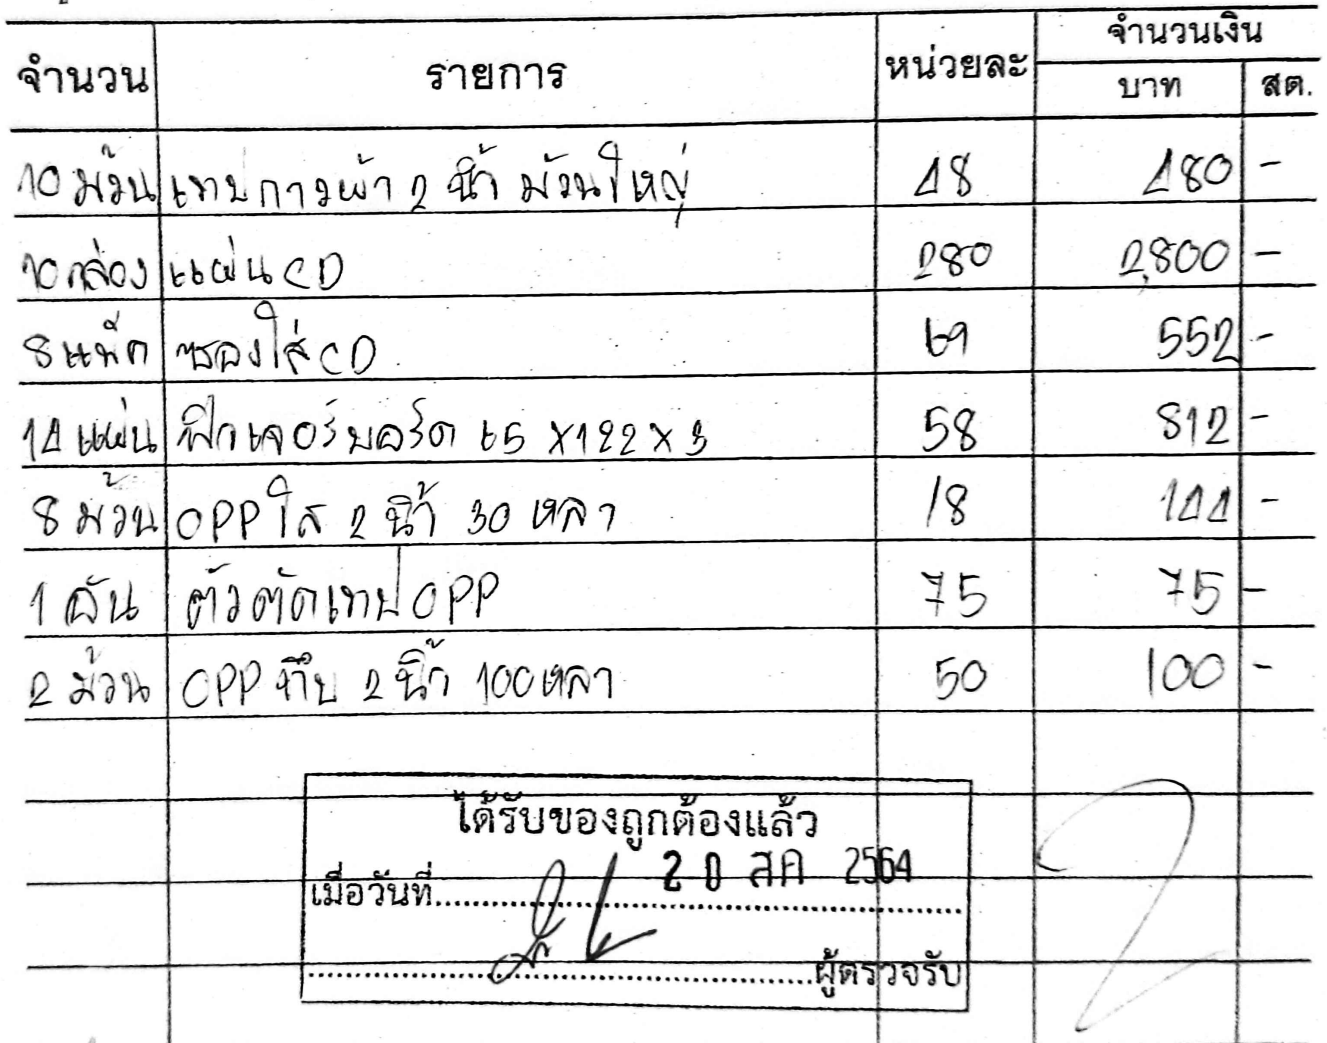 จำนวน รายการ หน่วยละ จำนวนเงิน
บาท สต.
10 ม้วน เทปกาวผ้า 2 นิ้ว ม้วนใหญ่ 48 480 -
10 กล่อง แผ่น CD 280 2,800 -
8 แพ็ค ซองใส่ CD 69 552 -
14 แผ่น ฟิวเจอร์บอร์ด 65 X 122 X 3 58 812 -
8 ม้วน OPP ใส 2 นิ้ว 30 หลา 18 144 -
1 อัน ตัวตัดเทป OPP 75 75 -
2 ม้วน OPP ทึบ 2 นิ้ว 100 หลา 50 100 -
ได้รับของถูกต้องแล้ว
เมื่อวันที่ 20 สค 2564
ผู้ตรวจรับ